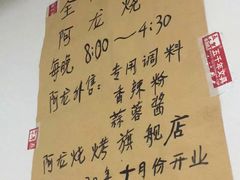 全
阿龙烧
每晚8:00～4:30
阿龙外售：专用调料
香辣粉
蒜蓉酱
阿龙烧烤旗舰店
年十月份开业
五千年文昌